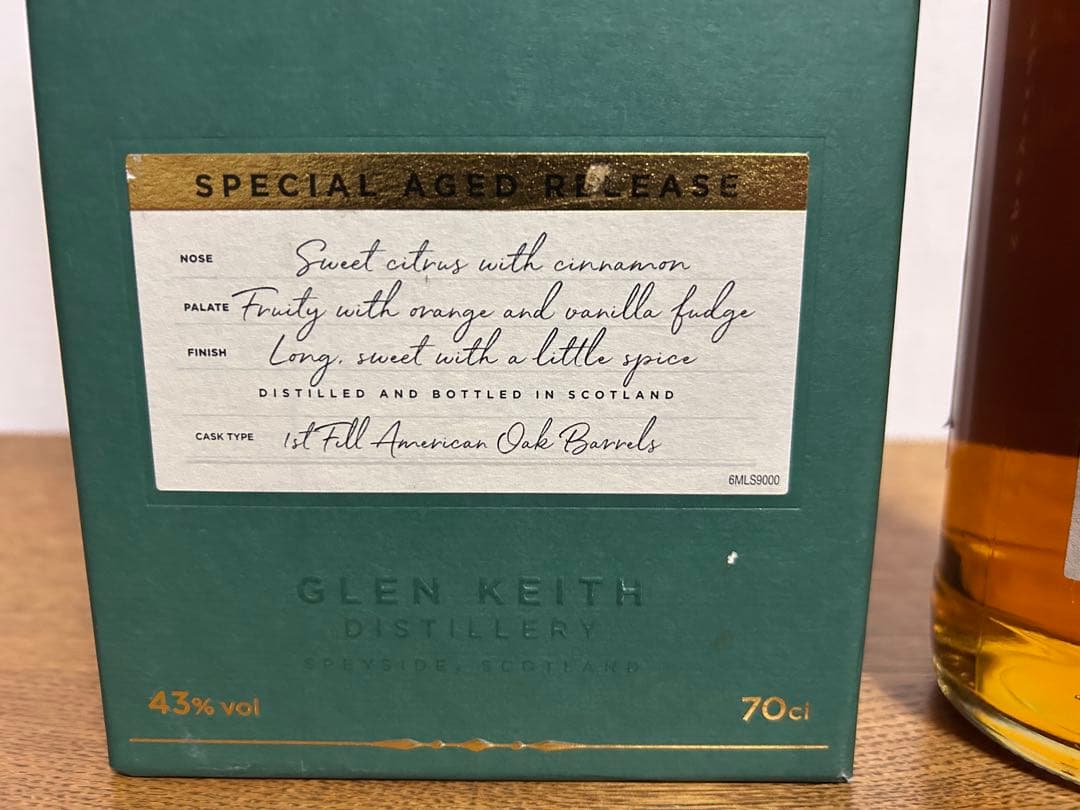 SPECIAL AGED RELEASE
NOSE Sweet citrus with cinnamon
PALATE Fruity with orange and vanilla fudge
FINISH Long, sweet with a little spice
DISTILLED AND BOTTLED IN SCOTLAND
CASK TYPE 1st Fill American Oak Barrels
6MLS9000
GLEN KEITH
DISTILLERY
SPEYSIDE, SCOTLAND
43% vol 70cl